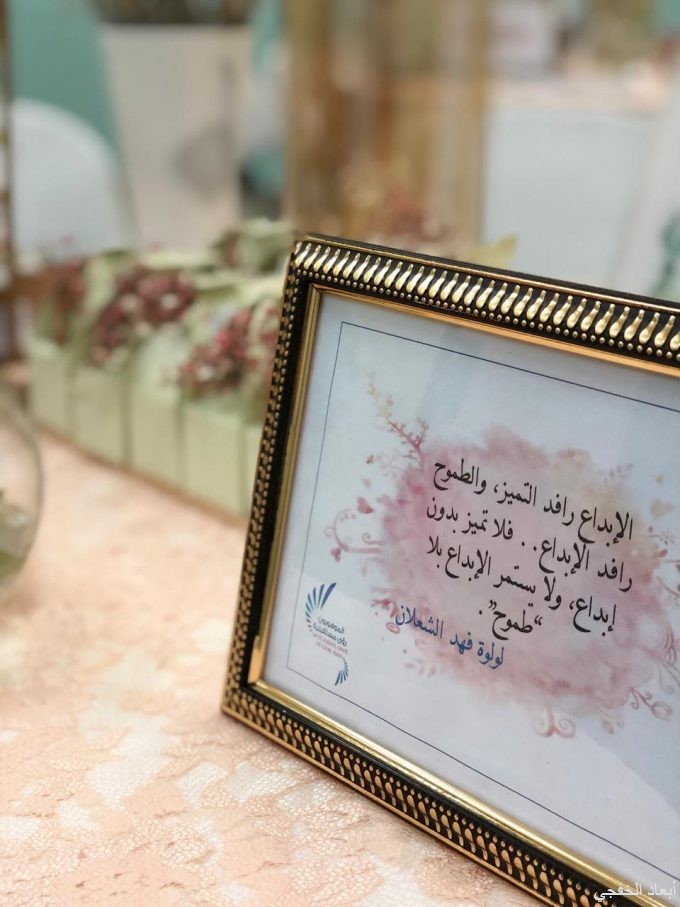 الإبداع رافد التميز، والطموح
رافد الإبداع.. فلا تميز بدون
إبداع، ولا يستمر الإبداع بلا
“طموح”.
لولوة فهد الشعلان
الموهوبون
رؤى مستقبلية
أبعاد الخفجي